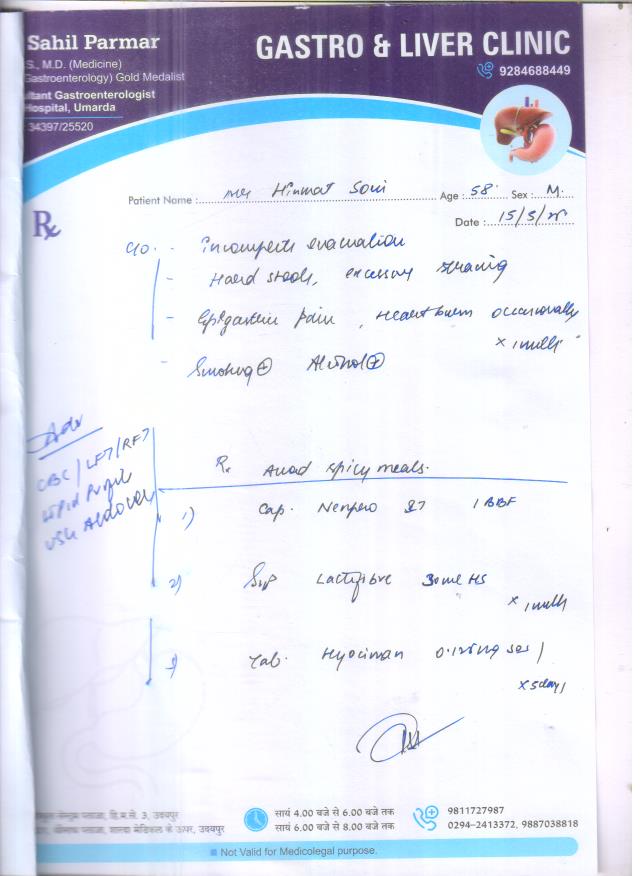 Sahil Parmar
S., M.D. (Medicine)
Gastroenterology) Gold Medalist
ltant Gastroenterologist
Hospital, Umarda
34397/25520
GASTRO & LIVER CLINIC
9284688449
Patient Name : Mr Himmat Soni Age : 58 Sex : M.
Date : 15/5/25
Rx
C/O. - Incomplete evacuation
- Hard stools, excessive straining
- Epigastric pain, Heartburn occasionally
x 1 mth
- Smoking + Alcohol +
Adv
CBC / LFT / RFT
Lipid Profile
USG Abdomen
Rx Avoid spicy meals.
1) Cap. Nenpro 1 BBF
2) Syp Lactifibre 30ml HS
x 1 mth
3) Tab. Hyociman 0.125mg SOS
x 5 days
सायं 4.00 बजे से 6.00 बजे तक
सायं 6.00 बजे से 8.00 बजे तक
9811727987
0294-2413372, 9887038818
प्लाजा, हि.म.से. 3, उदयपुर
प्लाजा, शारदा मेडिकल के ऊपर, उदयपुर
Not Valid for Medicolegal purpose.